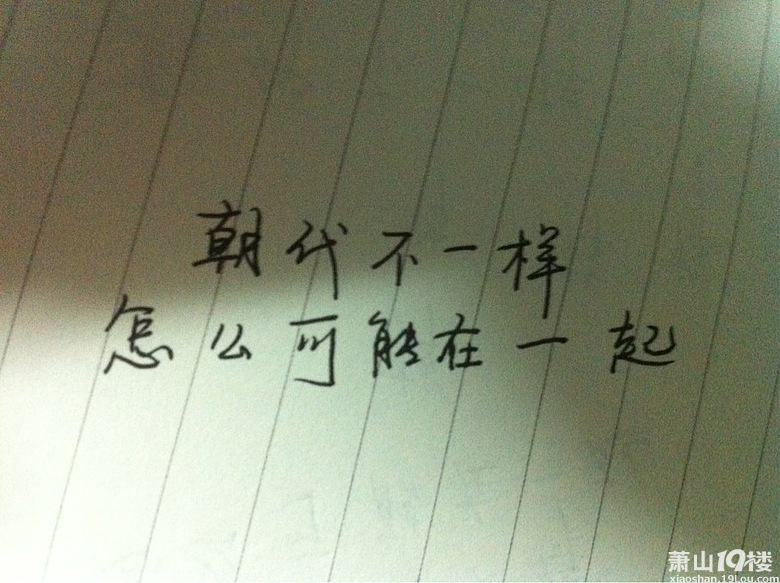 朝代不一样
怎么可能在一起
萧山19楼
xiaoshan.19lou.com